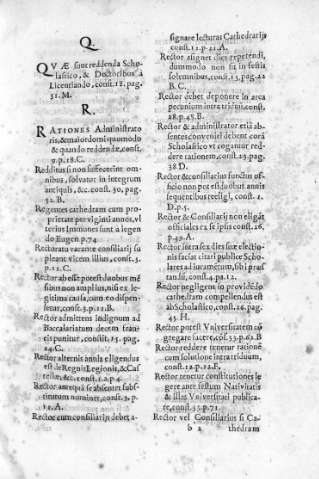 Q.
QVÆ sint reddenda Scho-
lastico, & Doctoribus à
Licentiando, const. 18. pag.
51. M.
R.
RATIONES Administrato
ris, & maiordomi quomodo
& quando reddendæ, const.
9. p. 18. C.
Redditus si non suffecerint om-
nibus, solvatur in integrum
antiquis, &c. const. 50. pag.
52. B.
Regentes cathedram cum pro-
prietate per viginti annos, vl
terius Immunes sunt à legen
do Eugen. p. 74
Rectoria vacante consiliarij su
pleant vicem illius, const. 3.
p. 12. C.
Rector abesse potest duobus mé
sibus non amplius, nisi ex le-
gitima causa, cum eo dispen-
setur, const. 3. p. 11. B.
Rector admittens indignum ad
Baccalariatum decem fran-
cis punitur, constit. 15. pag.
24. C.
Rector alternis annis eligendus
est de Regnis Legionis, & Cas
tellæ, &c. const. 1. p. 4
Rector antequã se absentet subst-
tutum nominet, const. 3. p.
12. A.
Rector cum consiliarijs debet a-
signare lecturas Cathedrarijs
const. 11. p. 21. A.
Rector asignet dies repetendi,
dummodo non sit in festis
solemnibus, const. 13. pag. 22
B. C.
Rector debet deponere in arca
pecuniam intra triduũ, const.
28. p. 45. B.
Rector & administrator etiã ab-
sentes conveniri debent corã
Scholastico vt cogantur red-
dere rationem, const. 25. pag.
38. D.
Rector & consiliarius functus of-
ficio non potest duobus annis
sequentibus reeligi, const. 1.
D. p. 5.
Rector & Consiliarij non eligãt
officiales ex se ipsis const. 26.
p. 49. A.
Rector intra sex dies suæ electio-
nis faciat citari publice Scho-
lares ad iuramẽtum, sibi præs
tan̄du, const. 4. p. 12.
Rector negligens in providẽdo
cathedram compellendus est
ab Scholastico, const. 26. pag.
45. H.
Rector potest Vniversitatem cõ
gregare
Rector reddere tenetur rationẽ
cum solutione intra triduum,
const. 12. p. 22. F.
Rector tenetur constitutiones le
gere ante festum Nativitatis
& illas Vniversitati publica-
re, const. 33. p. 71
Rector vel Consiliarius si Ca-
b 2 thedram